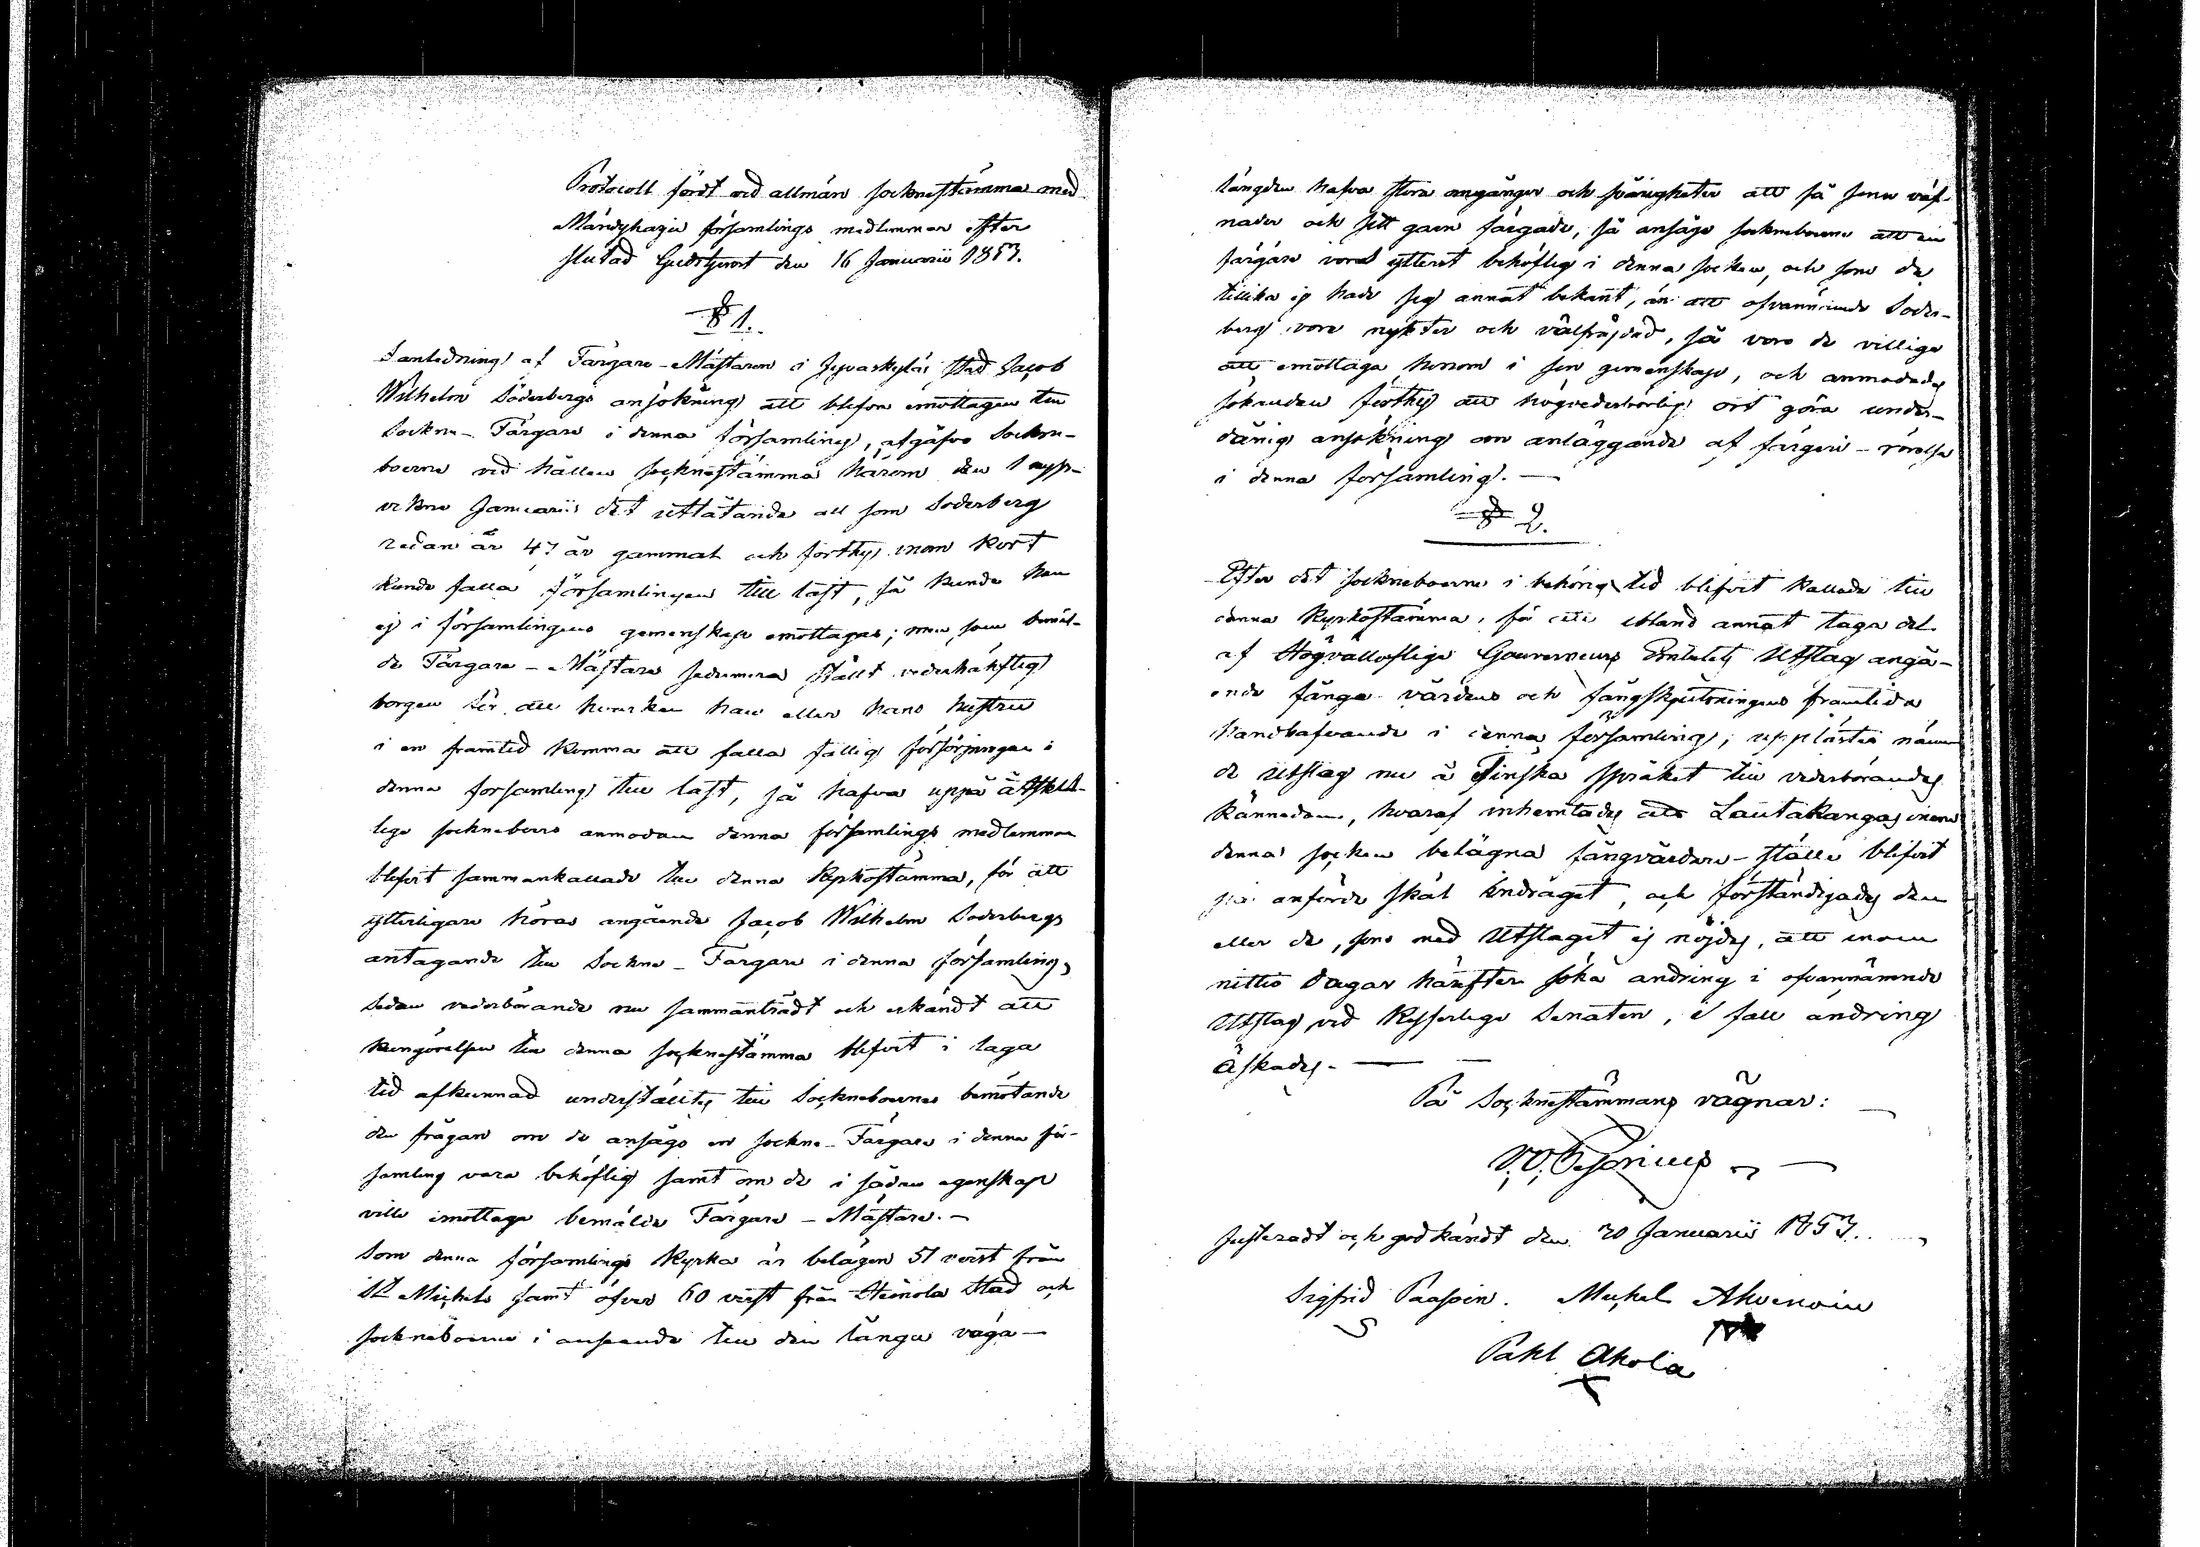 Protocoll fördt vid allmän socknestämma med
Mändyharju församlings medlemmar efter
slutad Gudstjenst den 16 Januarii 1853.
§ 1.
I anledning af Färgare-Mästaren i Jyvaskylä stad Jacob
Wilhelm Söderbergs ansökning att blifva emottagen till
Sockne-Färgare i denna församling, afgåfvo Sockne-
boerne vid hållen socknestämma härom den 1 nyss-
vekne Januarii det utlåtande att som Soderberg
redan är 47 år gammal och förthy inom kort
kunde falla församlingen till last, så kunde han
ej i församlingens gemenskap emottagas; men som bemäl-
de Färgare-Mästare sedermera ställt vederhäftig
borgen för att hvarken han eller hans hustru
i en framtid komma att falla fattig försörjningen i
denna forsamling till last, så hafva uppå åtskil-
lige sockneboers anmodan denna församlings medlemmar
blifvit sammankallade till denna kyrkostämma, för att
ytterligare höras angående Jacob Wilhelm Soderbergs
antagande till Sockne-Färgare i denna församling,
Sedan vederbörande nu sammanträdt och erkändt att
kungörelsen till denna socknestämma blifvit i laga
tid afkunnad understäldes till Sockneboernes bemötande
den frågan om de ansågo en sockne-Färgare i denna för-
samling vara behöflig samt om de i sådan egenskap
ville emottaga bemälde Färgare-Mästare.-
Som denna församlings kyrka är belägen 51 verst från
St Michels samt öfver 60 verst från Heinola stad och
sockneboerne i anseende till den långa väga-
längden hafva stora omgånger och svårigheter att få sina väf-
nader och sitt garn färgade, så ansågo sockneboerne att en
färgare vore ytterst behöflig i denna socken, och som de
tillika ej hade sig annat bekant, än att ofvannämnde Söder-
berg vore nykter och välfräjdad, så voro de villiga
att emottaga honom i sin gemenskap, och anmodades
sökanden förthy att högvederbörlig ort göra under-
dånig ansökning om anläggande af färgeri-rörelse
i denna församling. —
§ 2.
Efter det sockneboerne i behörig tid blifvit kallade till
denna kyrkostämma, för att ibland annat taga del
af Högvällofliga Gouverneurs Embetets Utslag angå-
ende fånga vårdens och fångskjutsningens framtida
handhafvande i denna församling, upplästes nämn
de Utslag nu å Finska språket till vederbörandes
kännedom, hvaraf inhemtades att Lautakangas inom
denna socken belägna fångvårdare-ställe blifvit
på anförde skäl indraget, och förständigades dem
eller de, som med Utslaget ej nöjdes, att inom
nittio dagar härefter söka andring i ofvannämnde
Utslag vid Kejserliga Senaten, i fall ändring
äskades. —
På Socknestämmans vägnar:
Justeradt och godkändt den 30 Januarii 1853.
Sigfrid Paasoin. Michel Ahvenain
Pahl Ahola